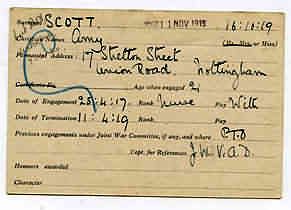 Surname SCOTT. 11 NOV 1919 16:10:19
Christian Names Amy (Mr., Mrs. or Miss)
Permanent Address: 17 Shelton Street
Union Road. Nottingham
Age when engaged 21
Date of Engagement 25.4.17. Rank Nurse Pay With
Date of Termination 11.4.19 Rank Pay
Previous engagements under Joint War Committee, if any, and where P.T.O
Cept. for References J.W.V.A.D.
Honours awarded
Character